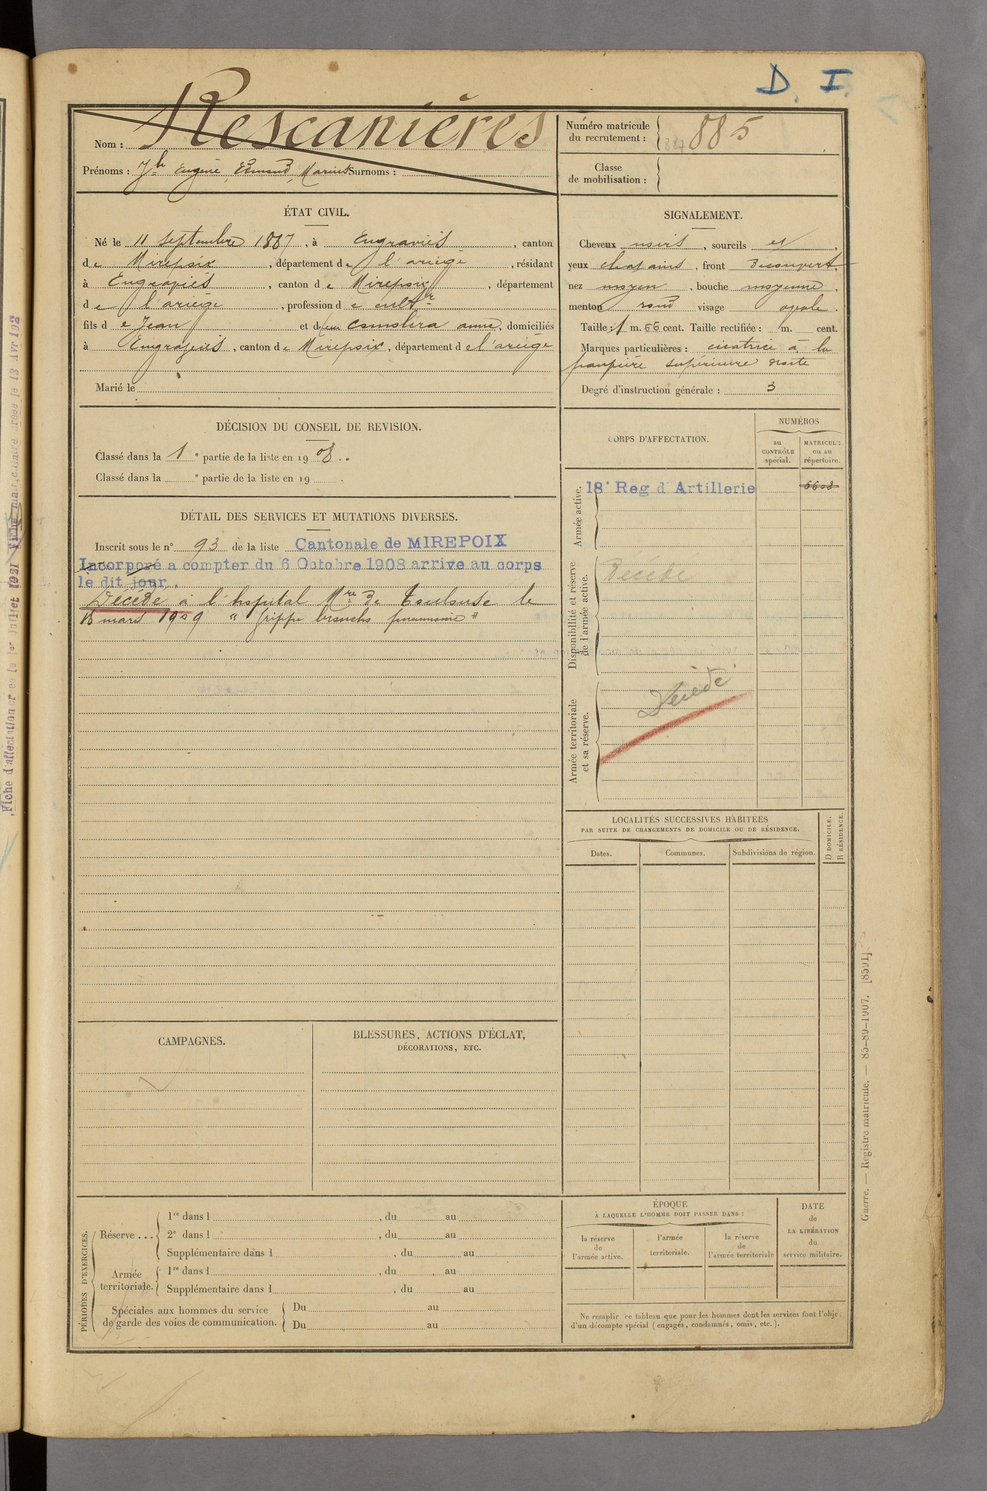 D. I.
Nom : Rescanières
Prénoms : Jh Eugène, Edmond, Marius Surnoms :
Numéro matricule
du recrutement : 885
Classe
de mobilisation :
ÉTAT CIVIL.
Né le 11 septembre 1887, à Engraviès, canton
de Mirepoix, département de l'ariège, résidant
à Engraviès, canton de Mirepoix, département
de l'ariège, profession de cultr
fils de Jean et de feu anne, domiciliés
à Engraviès, canton de Mirepoix, département de l'ariège
Marié le
SIGNALEMENT.
Cheveux noirs, sourcils et
yeux chatains, front découvert,
nez moyen, bouche moyenne,
menton rond visage ovale.
Taille : 1 m. 56 cent. Taille rectifiée : m. cent.
Marques particulières : cicatrice à la
paupière supérieure droite
Degré d'instruction générale : 3
DÉCISION DU CONSEIL DE REVISION.
Classé dans la 1e partie de la liste en 1908.
Classé dans la e partie de la liste en 19 .
DÉTAIL DES SERVICES ET MUTATIONS DIVERSES.
Inscrit sous le n° 93 de la liste Cantonale de MIREPOIX
Incorporé a compter du 6 Octobre 1908 arrive au corps
le dit jour.
Décédé à l'hopital Mre de Toulouse le
18 mars 1909 " grippe broncho pneumonie "
CORPS D'AFFECTATION.
NUMÉROS
au
CONTRÔLE
spécial.
MATRICULE
ou au
répertoire.
Armée active.
18e Reg d'Artillerie
Disponibilité et réserve
de l'armée active.
Décédé
Armée territoriale
et sa réserve.
Décédé
LOCALITÉS SUCCESSIVES HABITÉES
PAR SUITE DE CHANGEMENTS DE DOMICILE OU DE RÉSIDENCE.
Dates.
Communes.
Subdivisions de région.
D DOMICILE.
R RÉSIDENCE.
CAMPAGNES.
BLESSURES, ACTIONS D'ÉCLAT,
DÉCORATIONS, ETC.
PÉRIODES D'EXERCICES.
Réserve . . .
1re dans l , du au
2e dans l , du au
Supplémentaire dans l , du au
Armée
territoriale.
1re dans l , du au
Supplémentaire dans l , du au
Spéciales aux hommes du service
de garde des voies de communication.
Du au
Du au
ÉPOQUE
À LAQUELLE L'HOMME DOIT PASSER DANS :
la réserve
de
l'armée active.
l'armée
territoriale.
la réserve
de
l'armée territoriale
DATE
de
LA LIBÉRATION
du
service militaire.
Ne remplir ce tableau que pour les hommes dont les services font l'objet
d'un décompte spécial (engagés, condamnés, omis, etc.).
Guerre. — Registre matricule. — 85-89-1907. [8591]